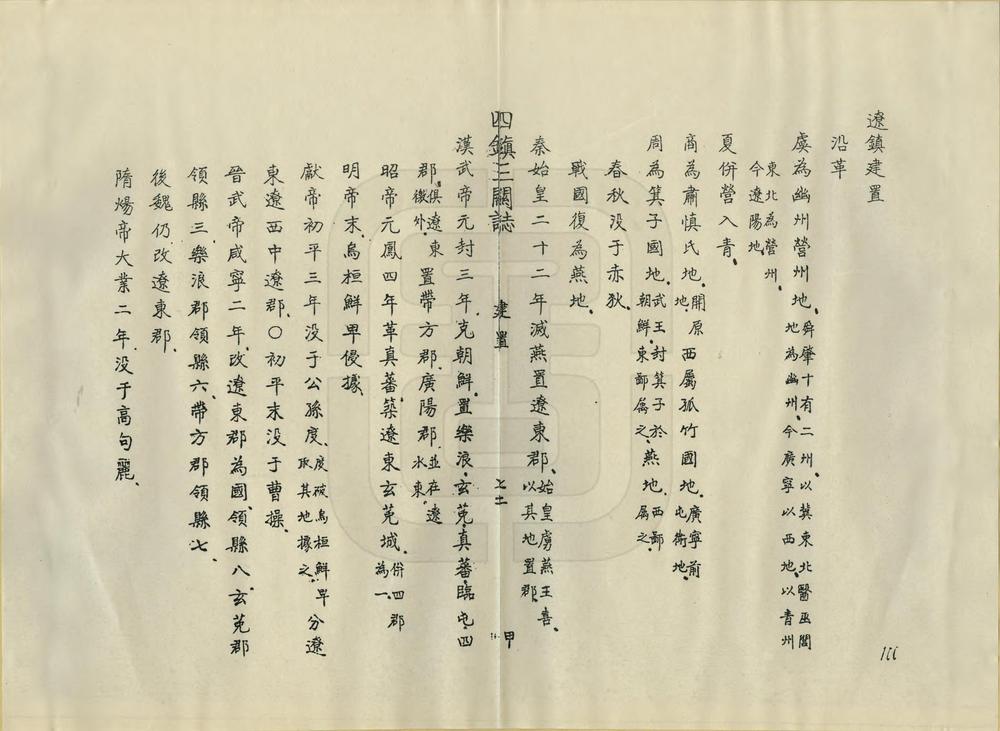 遼鎮建置
沿革
虞為幽州營州地、舜肇十有二州、以冀東北醫巫閭
地為幽州、今廣寧以西地、以青州
東北為營州、
今遼陽地、
夏併營入青、
商為肅慎氏地、開原西屬孤竹國地、廣寧前
地、屯衛地、
周為箕子國地、武王封箕子於燕地、西鄙
朝鮮、東鄙屬之、屬之、
春秋没于赤狄、
戰國復為燕地、
秦始皇二十二年滅燕置遼東郡、始皇虜燕王喜、
以其地置郡、
四鎮三關誌 建置 七十 甲
漢武帝元封三年、克朝鮮、置樂浪、玄菟、真蕃、臨屯、四
郡、俱遼東
徼外、置帶方郡、廣陽郡、並在遼
水東、
昭帝元鳳四年革真蕃、築遼東玄菟城、併四郡
為一、
明帝末、烏桓鮮卑侵據、
獻帝初平三年没于公孫度、度破烏桓鮮卑
取其地據之、分遼
東遼西中遼郡、〇初平末没于曹操、
晉武帝咸寧二年、改遼東郡為國、領縣八、玄菟郡
領縣三、樂浪郡領縣六、帶方郡領縣七、
後魏仍改遼東郡、
隋煬帝大業二年、没于高句麗、
111